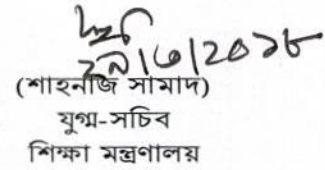 ২৯/৩/২০১৮
(শাহনাজ সামাদ)
যুগ্ম-সচিব
শিক্ষা মন্ত্রণালয়